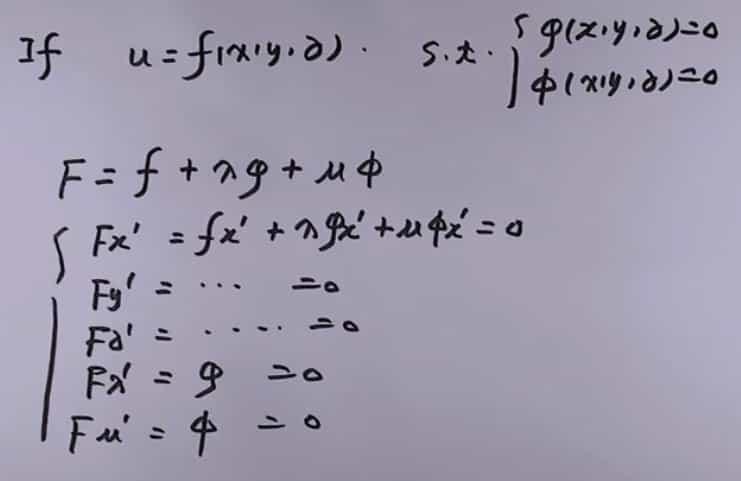 If u = f(x,y,z). s.t. { φ(x,y,z)=0
ϕ(x,y,z)=0
F = f + λφ + μϕ
{ Fx' = fx' + λφx' + μϕx' = 0
Fy' = ... =0
Fz' = ..... =0
Fλ' = φ =0
Fμ' = ϕ =0